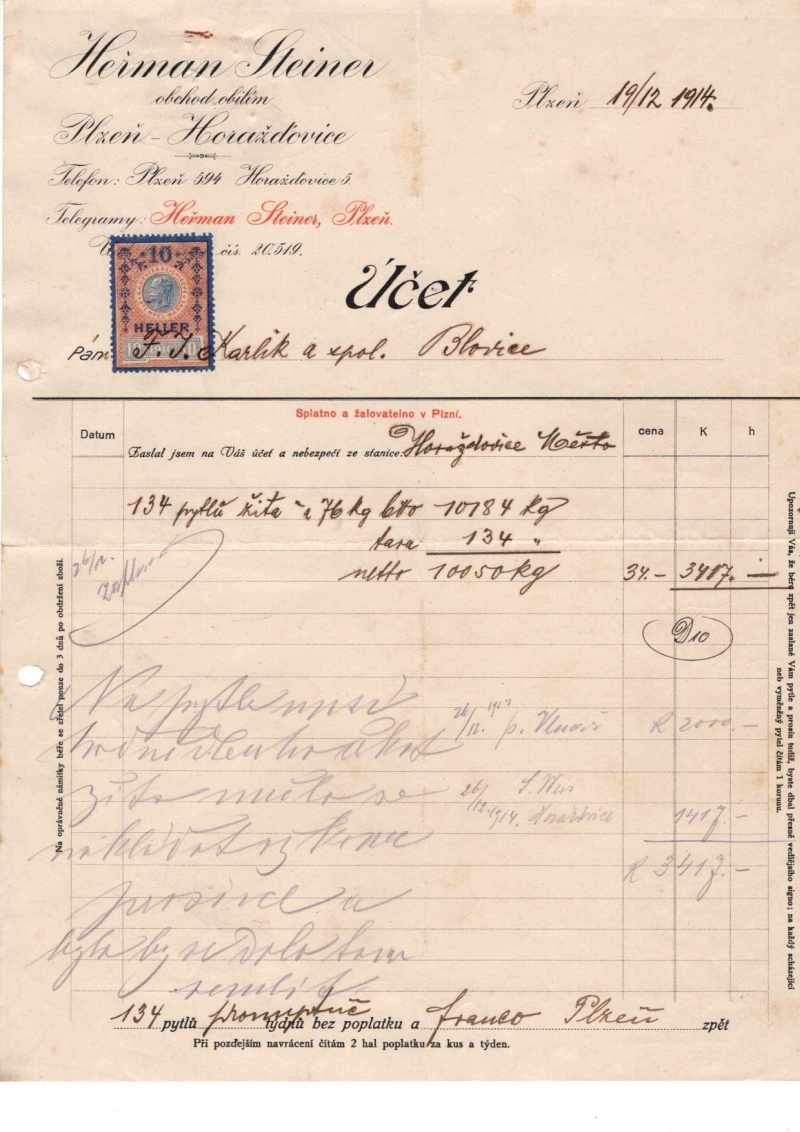 Heřman Steiner
obchod obilím
Plzeň - Horažďovice
Telefon: Plzeň 594 Horažďovice 5.
Telegramy: Heřman Steiner, Plzeň.
čís. 20.519.
Plzeň 19/12 1914.
10
HELLER
Účet
Pán F. J. Karlík a spol. Blovice
Splatno a žalovatelno v Plzni.
Datum
cena K h
Zaslal jsem na Váš účet a nebezpečí ze stanice: Horažďovice Město
134 pytlů žita à 76 kg btto 10184 kg
tara 134 "
netto 10050 kg 34.- 3417.-
D10
Na pytle
26/12. K 2000.-
žita mělo se
26/12. 1914. 1417.-
K 3417.-
prosince a
bylo by se dalo tam
134 pytlů promptně týdnů bez poplatku a franco Plzeň zpět
Při pozdejším navrácení čítám 2 hal poplatku za kus a týden.
Na oprávněné námitky béře se zřetel pouze do 3 dnů po obdržení zboží.
Upozorňuji Vás, že béru zpět jen zaslané Vám pytle a prosím tudíž, byste dbal přesně vedlejšího signo; na každý scházející
neb vyměněný pytel čítám 1 korunu.